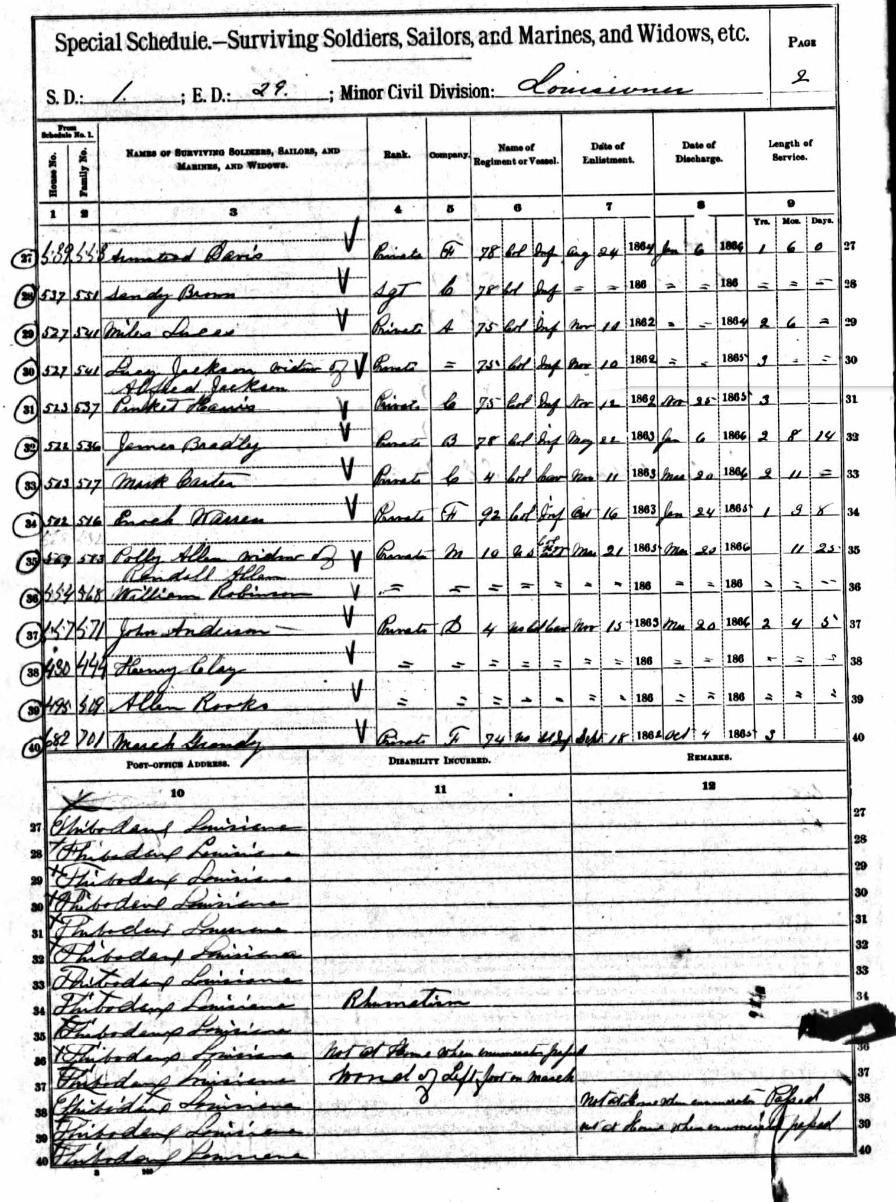 Special Schedule.—Surviving Soldiers, Sailors, and Marines, and Widows, etc.
PAGE 2
S. D.: 1. ; E. D.: 29. ; Minor Civil Division:
From Schedule No. 1.
House No. Family No. NAMES OF SURVIVING SOLDIERS, SAILORS, AND MARINES, AND WIDOWS. Rank. Company. Name of Regiment or Vessel. Date of Enlistment. Date of Discharge. Length of Service.
1 2 3 4 5 6 7 8 9
Yrs. Mos. Days.
27 539 553 Armstead Davis Private F 78 Col Inf Aug 24 1864 Jan 6 1866 1 6 0 27
28 537 551 Sandy Brown Sgt C 78 Col Inf = = 186 = = 186 = = = 28
29 527 541 Miles Lucas Private A 75 Col Inf Nov 1862 = = 1864 2 6 = 29
30 527 541 Lucy Jackson widow of Private = 75 Col Inf Nov 10 1862 = = 1865 3 - = 30
Jackson
31 523 537 Harris Private C 75 Col Inf Nov 12 1862 Nov 25 1865 3 31
32 522 536 James Bradly Private B 78 Col Inf May 22 1863 Jan 6 1866 2 8 14 32
33 503 517 Mark Carter Private C 4 Col Cav Nov 11 1863 Mar 20 1866 2 11 = 33
34 502 516 Enoch Warren Private F 92 Col Inf Oct 16 1863 Jan 24 1865 1 9 8 34
35 Polly Allen widow of Private M 10 U S Col Mar 21 1865 Mar 20 1866 11 25 35
Rendall Allen
36 554 568 William Robinson = = = = = = = 186 = = 186 = = = 36
37 557 571 John Anderson Private D 4 us Col Cav Nov 15 1863 Mar 20 1866 2 4 5 37
38 430 444 Henry Clay = = = = = = = 186 = = 186 = = = 38
39 495 509 Allen Rooks = = = = = = = 186 = = 186 = = = 39
40 682 701 March Grandy Private F 74 us Col Inf Sept 18 1862 Oct 4 1865 3 40
POST-OFFICE ADDRESS. DISABILITY INCURRED. REMARKS.
10 11 12
27 Thibodaux Louisiana 27
28 Thibodaux Louisiana 28
29 Thibodaux Louisiana 29
30 Thibodaux Louisiana 30
31 Thibodaux Louisiana 31
32 Thibodaux Louisiana 32
33 Thibodaux Louisiana 33
34 Thibodaux Louisiana Rhumatism 34
35 Thibodaux Louisiana
36 Thibodaux Louisiana Not at Home when enumerator passed 36
37 Thibodaux Louisiana Wond of Left foot on march 37
38 Thibodaux Louisiana Not at Home when enumerator Passed 38
39 Thibodaux Louisiana not at Home when enumerator passed 39
40 Thibodaux Louisiana 40